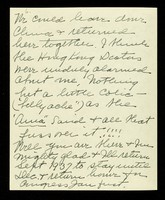 We could learn door
China & returned
here together. I think
the Hong Kong Doctors
were unduly alarmed
about me, "Nothing
but a little Colic -
belly ache") as the
"Ama" said & all that
fuss over it - !!!!
Well you are there & I'm
mighty glad & Ill return
Sept 1937 to stay until
Dec & return home for